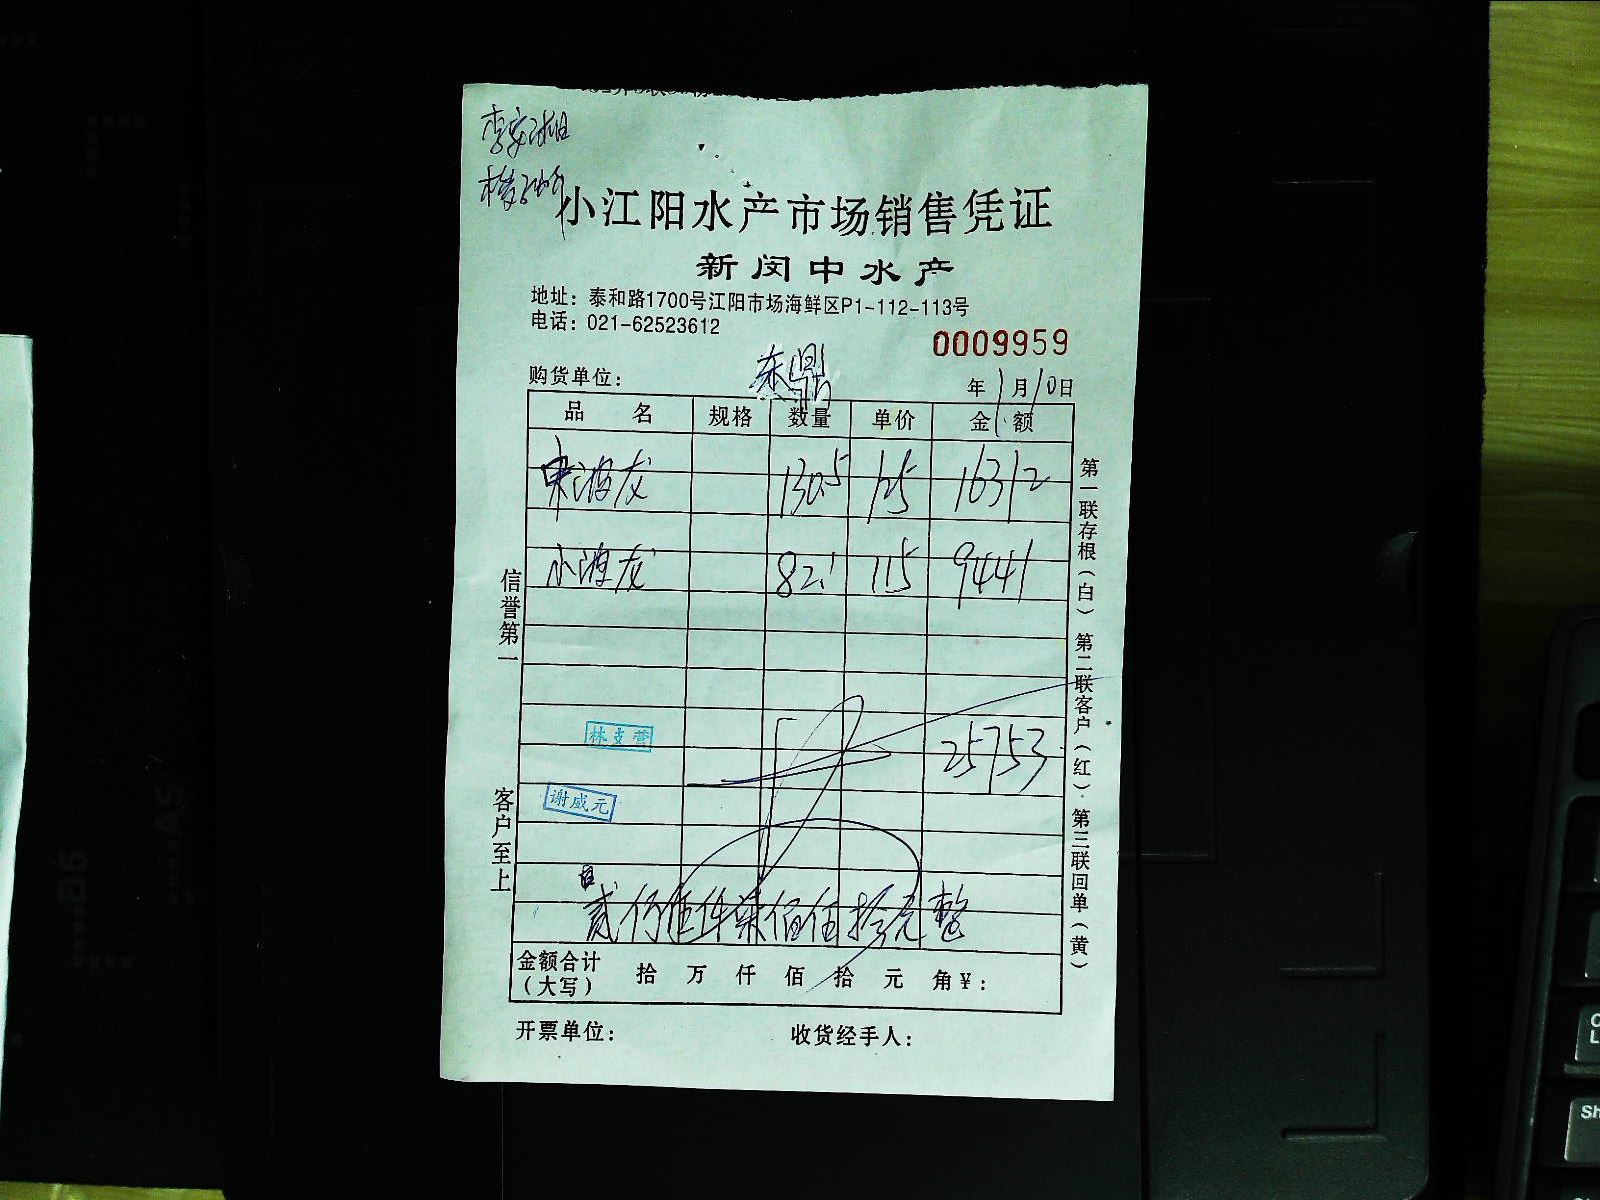 小江阳水产市场销售凭证
新闵中水产
地址：泰和路1700号江阳市场海鲜区P1-112-113号
电话：021-62523612
0009959
购货单位： 鼎
年1月10日
品 名 规格 数量 单价 金 额
波龙 130.5 125 16312
小波龙 82.1 115 9441
25753
林支营
谢威元
元整
金额合计（大写） 拾 万 仟 佰 拾 元 角￥：
开票单位： 收货经手人：
信誉第一
客户至上
第一联存根（白） 第二联客户（红） 第三联回单（黄）
B5
A5